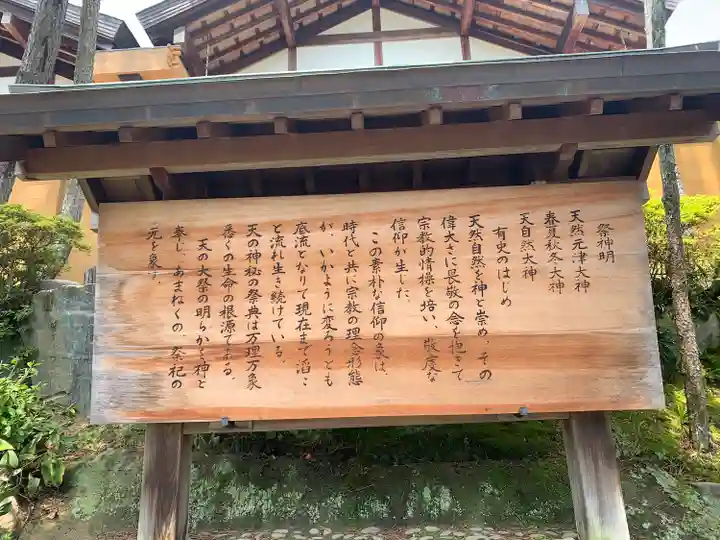 祭神明
天然元津大神
春夏秋冬大神
天自然大神
有史のはじめ
天然自然を神と崇め、その
偉大さに畏敬の念を抱きて
宗教的情操を培い、敬虔な
信仰が生じた。
この素朴な信仰の象は、
時代と共に宗教の理念形態
が、いかように変ろうとも
底流となりて現在まで滔こ
と流れ生き続けている。
天の神秘の祭典は万理万象
悉くの生命の根源である。
天の大祭の明らかを神と
奉じ、あまねくの、祭祀の
元を象す。